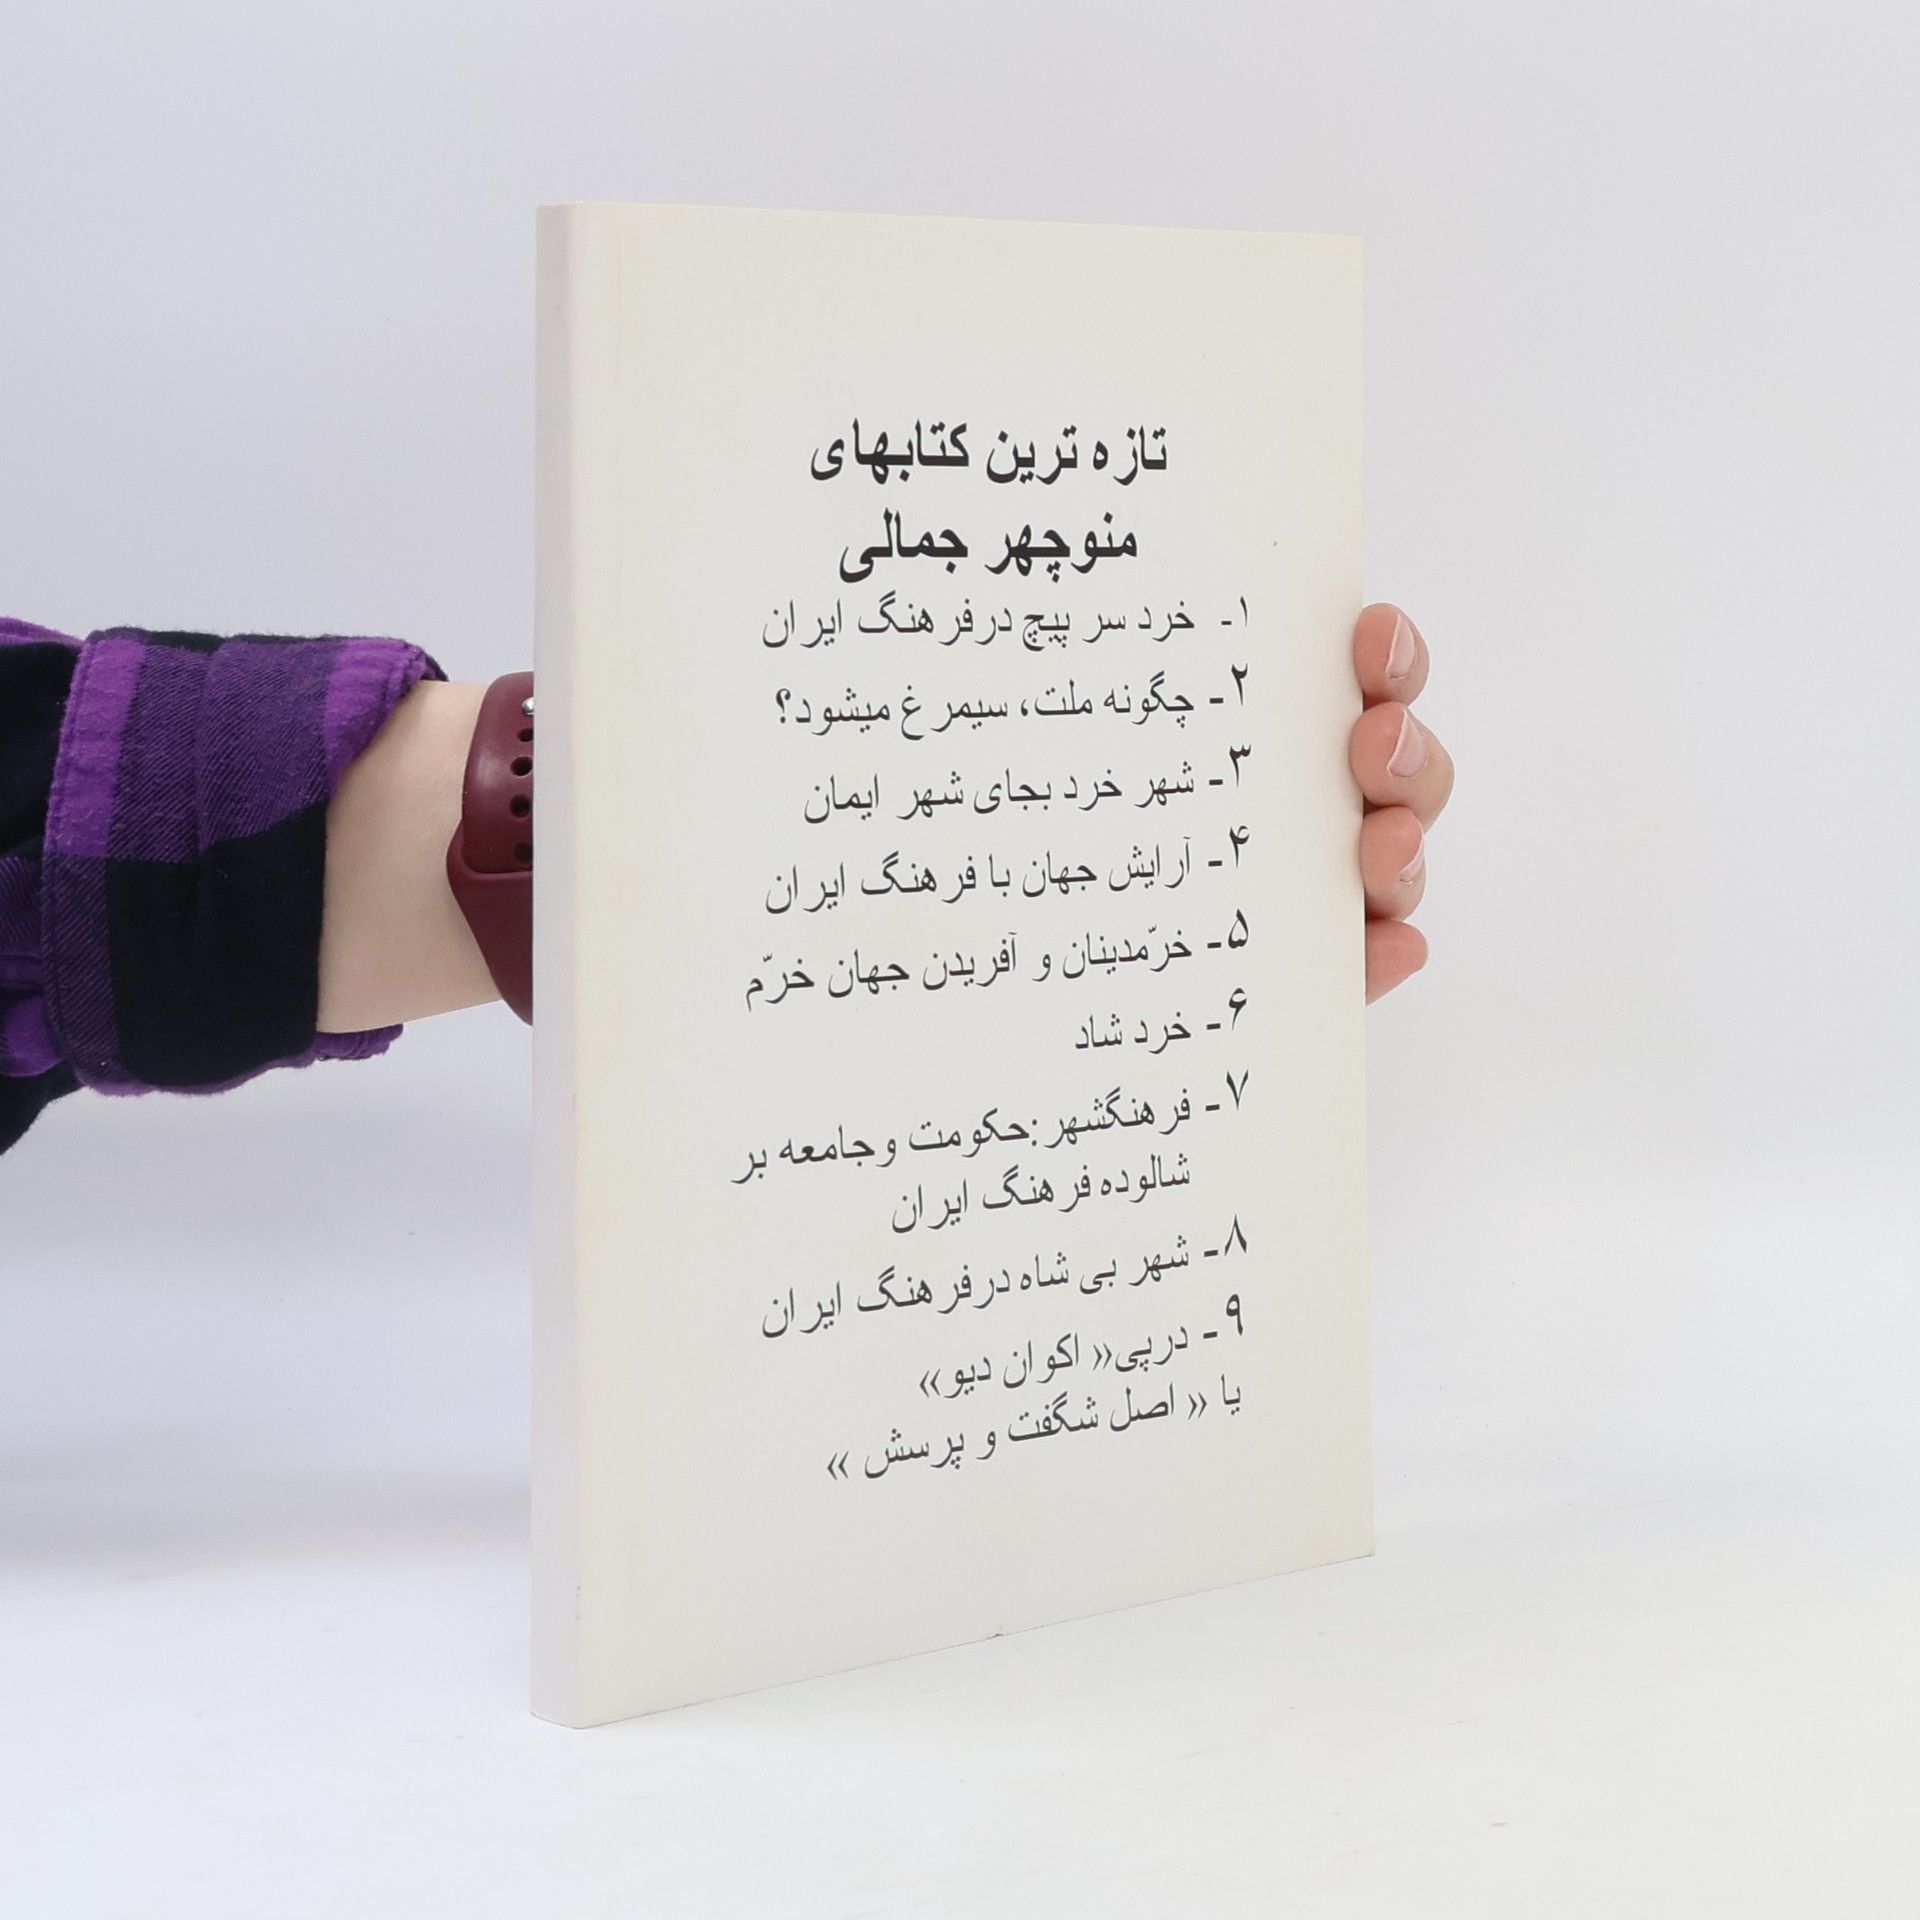 تازه ترین کتابهای
منوچهر جمالی
۱- خرد سر پیچ درفرهنگ ایران
۲- چگونه ملت، سیمرغ میشود؟
۳- شهر خرد بجای شهر ایمان
۴- آرایش جهان با فرهنگ ایران
۵- خرّمدینان و آفریدن جهان خرّم
۶- خرد شاد
۷- فرهنگشهر:حکومت وجامعه بر
شالوده فرهنگ ایران
۸- شهر بی شاه درفرهنگ ایران
۹- درپی« اکوان دیو»
یا « اصل شگفت و پرسش »